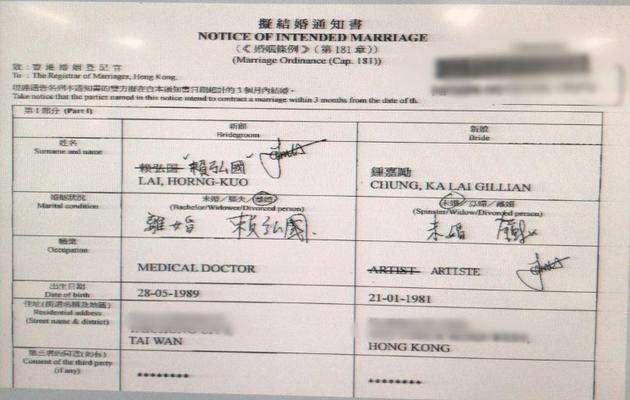 擬結婚通知書
NOTICE OF INTENDED MARRIAGE
(《婚姻條例》(第 181 章))
(Marriage Ordinance (Cap. 181))
致：香港婚姻登記官
To : The Registrar of Marriages, Hong Kong.
Take notice that the parties named in this notice intend to contract a marriage within 3 months from the date of th
第 I 部分 (Part I)
新郎
Bridegroom
新娘
Bride
姓名
Surname and name
賴弘国 "賴弘國"
LAI, HORNG-KUO
鍾嘉勵
CHUNG, KA LAI GILLIAN
婚姻狀況
Marital condition
未婚／鰥夫／離婚
(Bachelor/Widower/Divorced person)
離婚 賴弘國
未婚／寡婦／離婚
(Spinster/Widow/Divorced person)
未婚
職業
Occupation
MEDICAL DOCTOR
ARTIST ARTISTE
出生日期
Date of birth
28-05-1989
21-01-1981
住址(街道名稱及地區)
Residential address
(Street name & district)
TAI WAN
HONG KONG
第三者的同意(如有)
Consent of the third party
(if any)
********
********